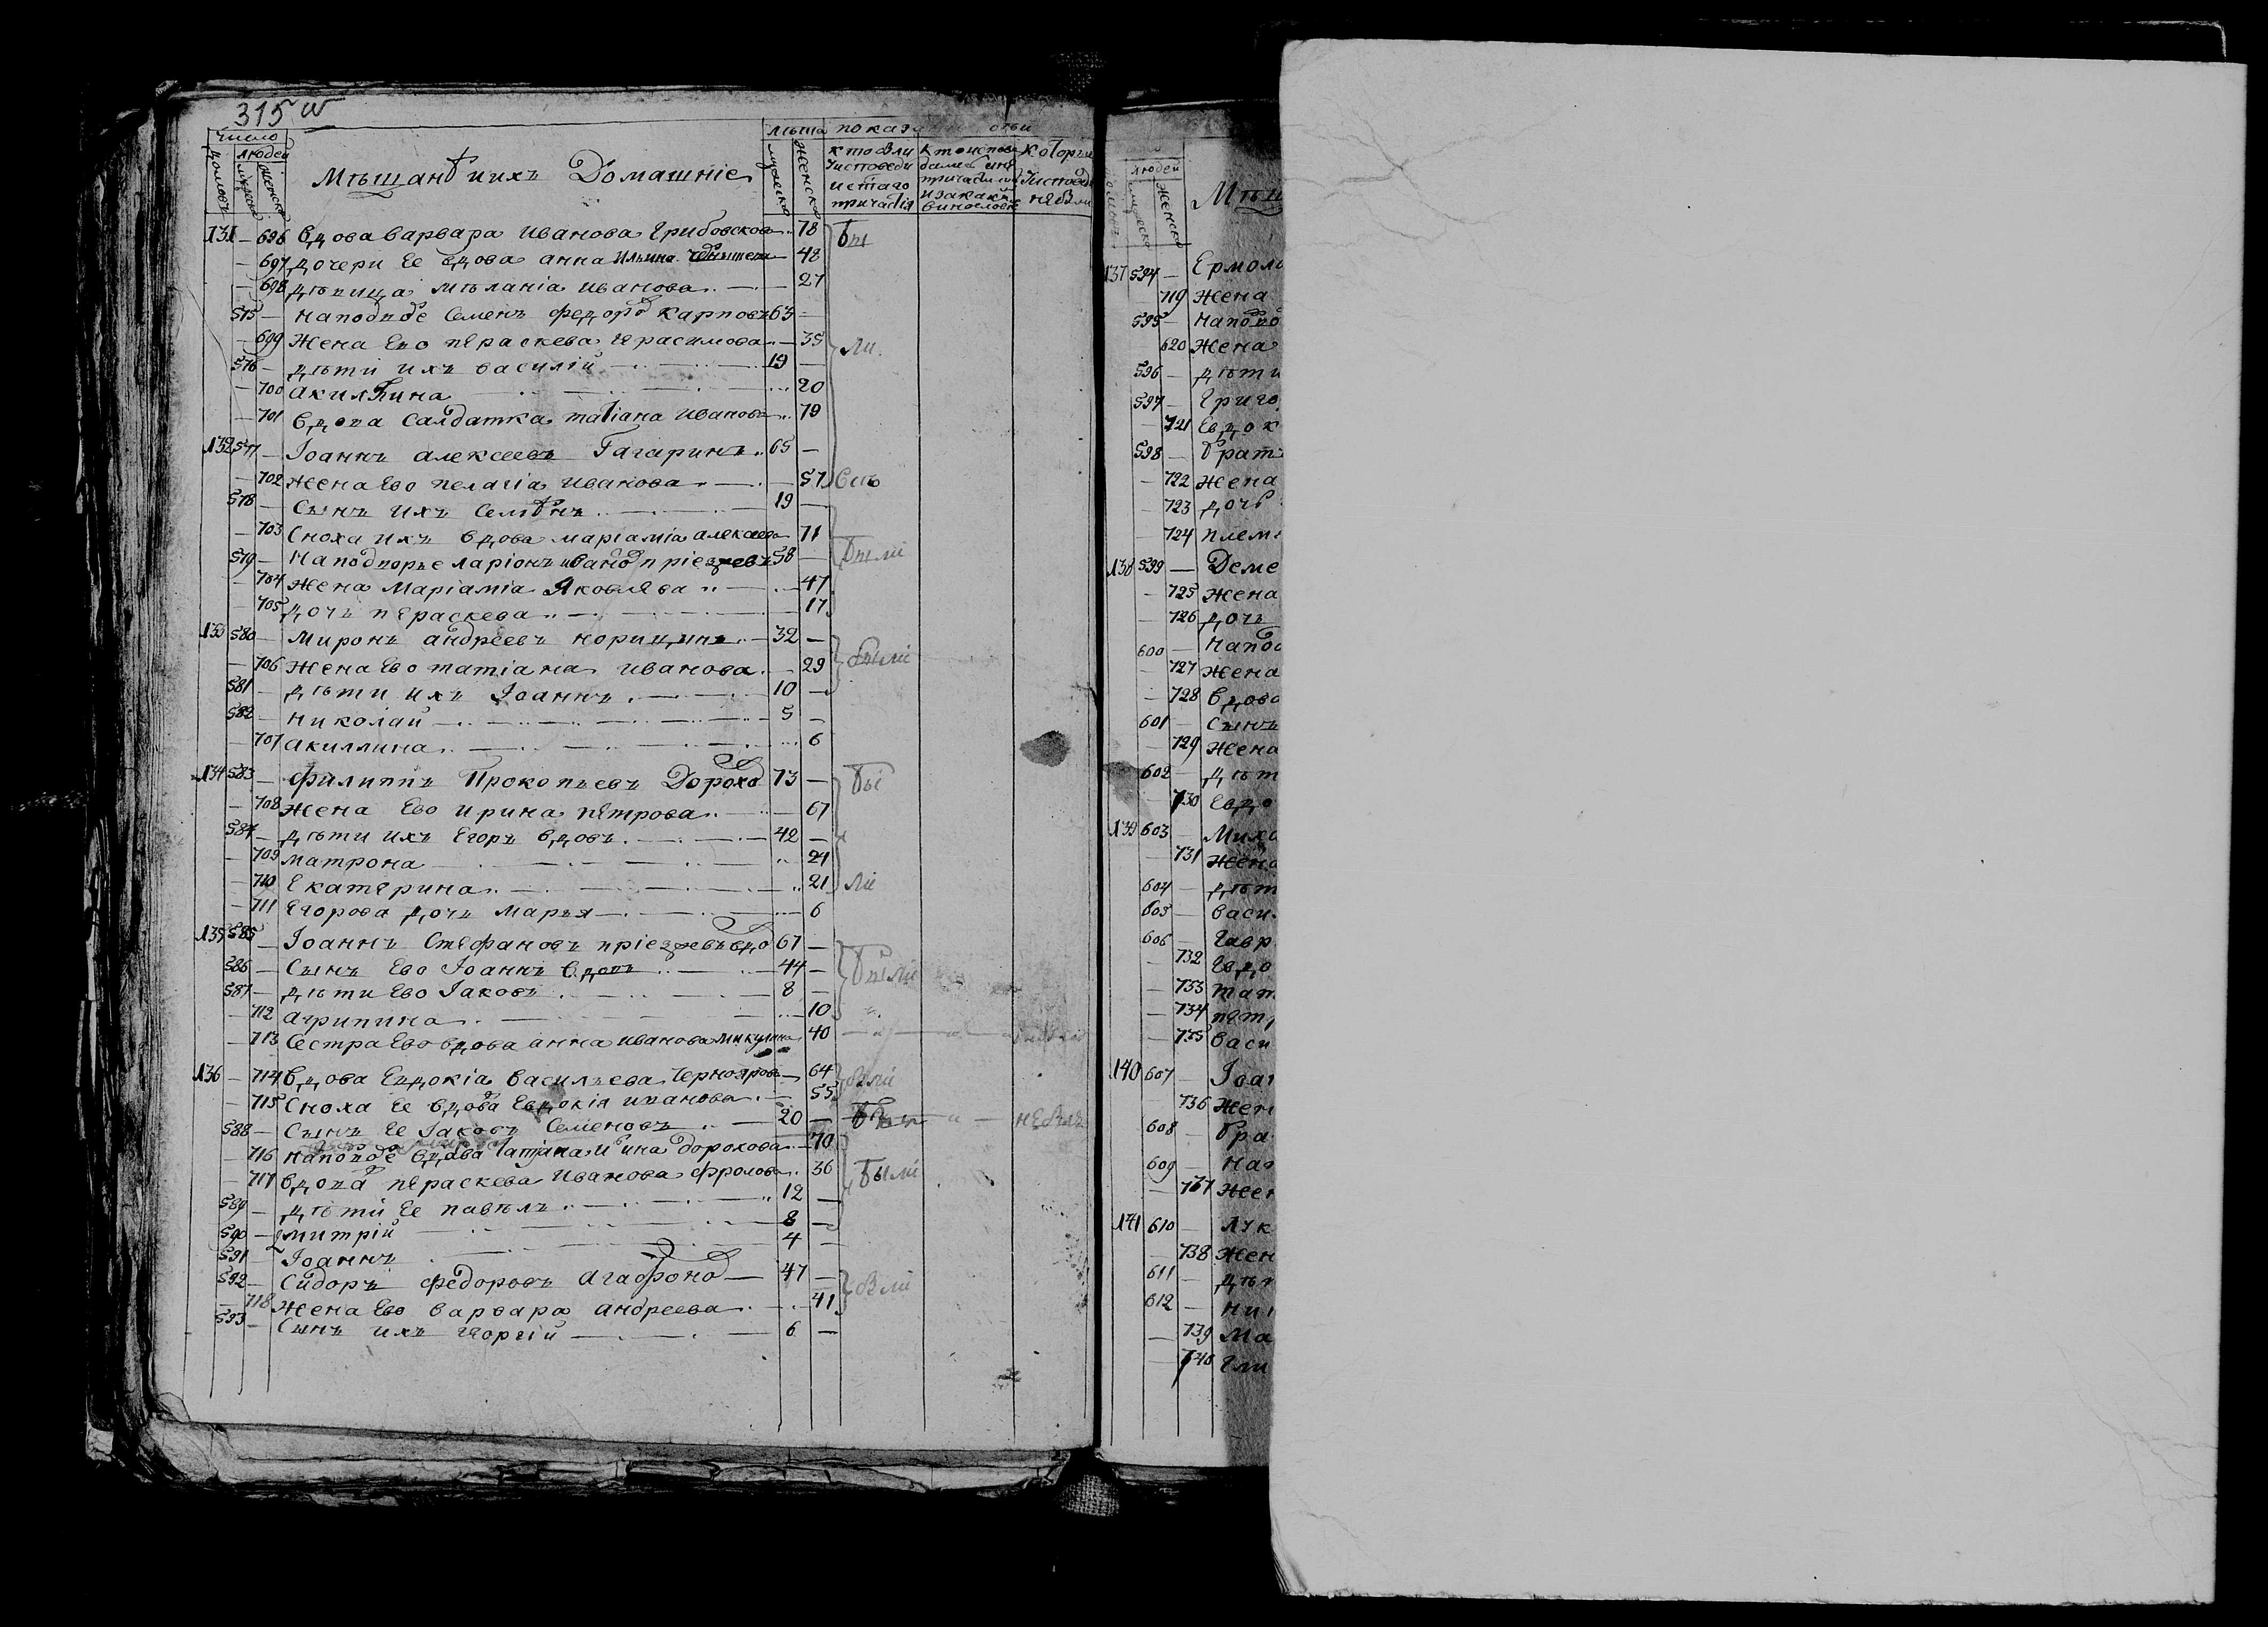 315 об
число
людей
домовъ
мужеска
женска
Мѣщанѣ и ихъ Домашніе
лѣта
мужеска
женска
показа
кто были у исповеди и стаго причастія
которые у исповеди не были
131 — 696 Вдова варвара иванова Грибовскова 78
Бы
— 697 дочери ее вдова анна Ильина 48
— 698 дѣвица мѣланія иванова 27
575 — На подворье Семенъ федоров Карповъ 63 —
— 699 Жена Ево параскева герасимова — 35
ли
576 — дѣти ихъ василій 19 —
— 700 акилина 20
— 701 Вдова Салдатка татіана Иванова 79
132 577 — Іоаннъ алексеевъ Гагаринъ 65 —
— 702 жена Ево пелагіа иванова — 57
578 — Сынъ ихъ Семѣнъ 19 —
— 703 Сноха ихъ вдова маріаміа алексеева 71
579 — На подворье ларіонъ иванов пріезжевъ 58 —
Были
— 704 жена Маріаміа Яковлева 47
— 705 дочь параскева — 17
133 580 — Миронъ андреевъ норицынъ 32 —
— 706 жена Ево татіана иванова — 29
были
581 — дѣти ихъ Іоаннъ 10 —
582 — николай 5 —
— 707 акиллина 6
134 583 — филиппъ Прокопьевъ Дорохов 73 —
Бы
— 708 жена Ево ирина петрова — 67
584 — дѣти ихъ Егоръ вдовъ 42 —
— 709 матрона 24
— 710 Екатерина 21
ли
— 711 Егорова дочь Марья 6
135 585 — Іоаннъ Стефановъ пріезжевъ вдов 67 —
586 — Сынъ Ево Іоаннъ вдовъ 44 —
Были
587 — дѣти Ево Іаковъ 8 —
— 712 агрипина 10
— 713 Сестра Ево вдова анна иванова микулина 40
136 — 714 Вдова Евдокіа васильева Чернояров 64
были
— 715 Сноха Ее вдова Евдокія иванова 55
588 — Сынъ Ее Іаковъ Семеновъ 20 —
не былъ
— 716 на подворье вдава татіана дорохова 70
— 717 вдова параскева иванова фролова 36
Были
589 — дѣти Ее павелъ 12 —
590 — дмитрій 8 —
591 — Іоаннъ 4 —
592 — Сидоръ федоровъ Агафонов 47 —
были
— 718 жена Ево варвара андреева 41
593 — Сынъ ихъ георгій 6 —
людей
мужеска
женска
137 594 — Ермола
719 жена
595 — На подво
620 жена
596 — дѣти
597 — Григо
— 721 Евдок
598 — брат
— 722 жена
— 723 дочь
— 724 племя
138 599 — Деме
— 725 жена
— 726 дочь
600 — На под
— 727 жена
— 728 вдова
601 — Сынъ
— 729 жена
602 — дѣт
— 730 Евдо
139 603 — Миха
— 731 жена
604 — дѣт
605 — васи
606 — гавр
— 732 Евдо
— 733 тат
— 734 пет
— 735 васи
140 607 — Іоан
— 736 жен
608 — бра
609 — на
— 737 жен
141 610 — лук
— 738 жен
611 — дѣт
612 — ни
— 739 Ма
— 740 гли